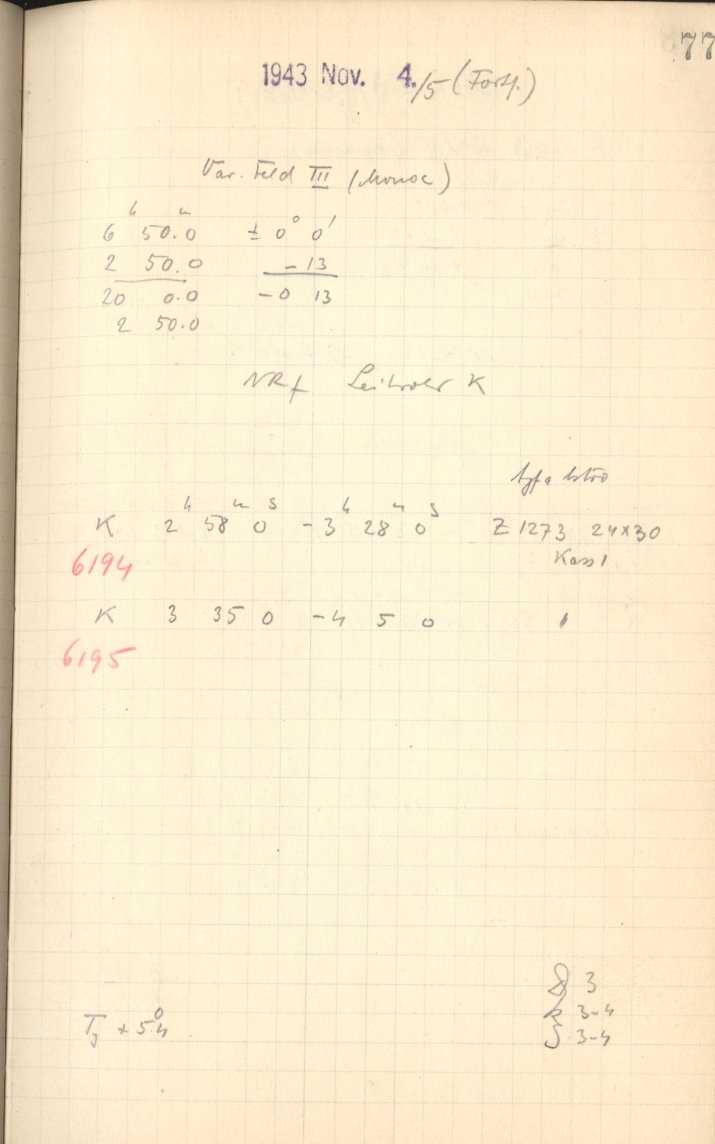 77
1943 Nov. 4./5 (Forts.)
Var. Feld III (Monoc)
6ʰ 50.0ᵐ ± 0° 0'
2 50.0 -13
20 0.0 -0 13
2 50.0
Leitrohr K
K 2ʰ 58ᵐ 0ˢ - 3ʰ 28ᵐ 0ˢ Z 1273 24x30
6194 Kass 1
K 3 35 0 - 4 5 0 "
6195
3
3-4
T + 5.4° 3-4